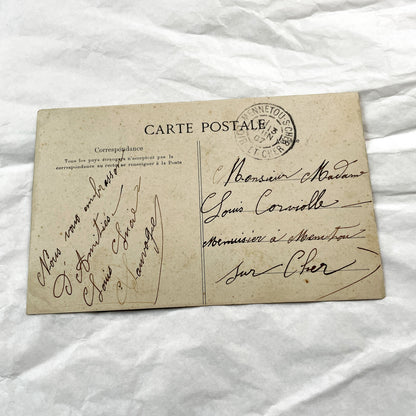 CARTE POSTALE
Correspondance
Tous les pays étrangers n'acceptent pas la
correspondance au recto se renseigner à la Poste
Nous vous embrassons
D'Amitiés
Louis
Sauvage
MENNETOU-S-CHER
07
Monsieur Madame
Louis Corviolle
Menuisier à Mennetou
sur Cher